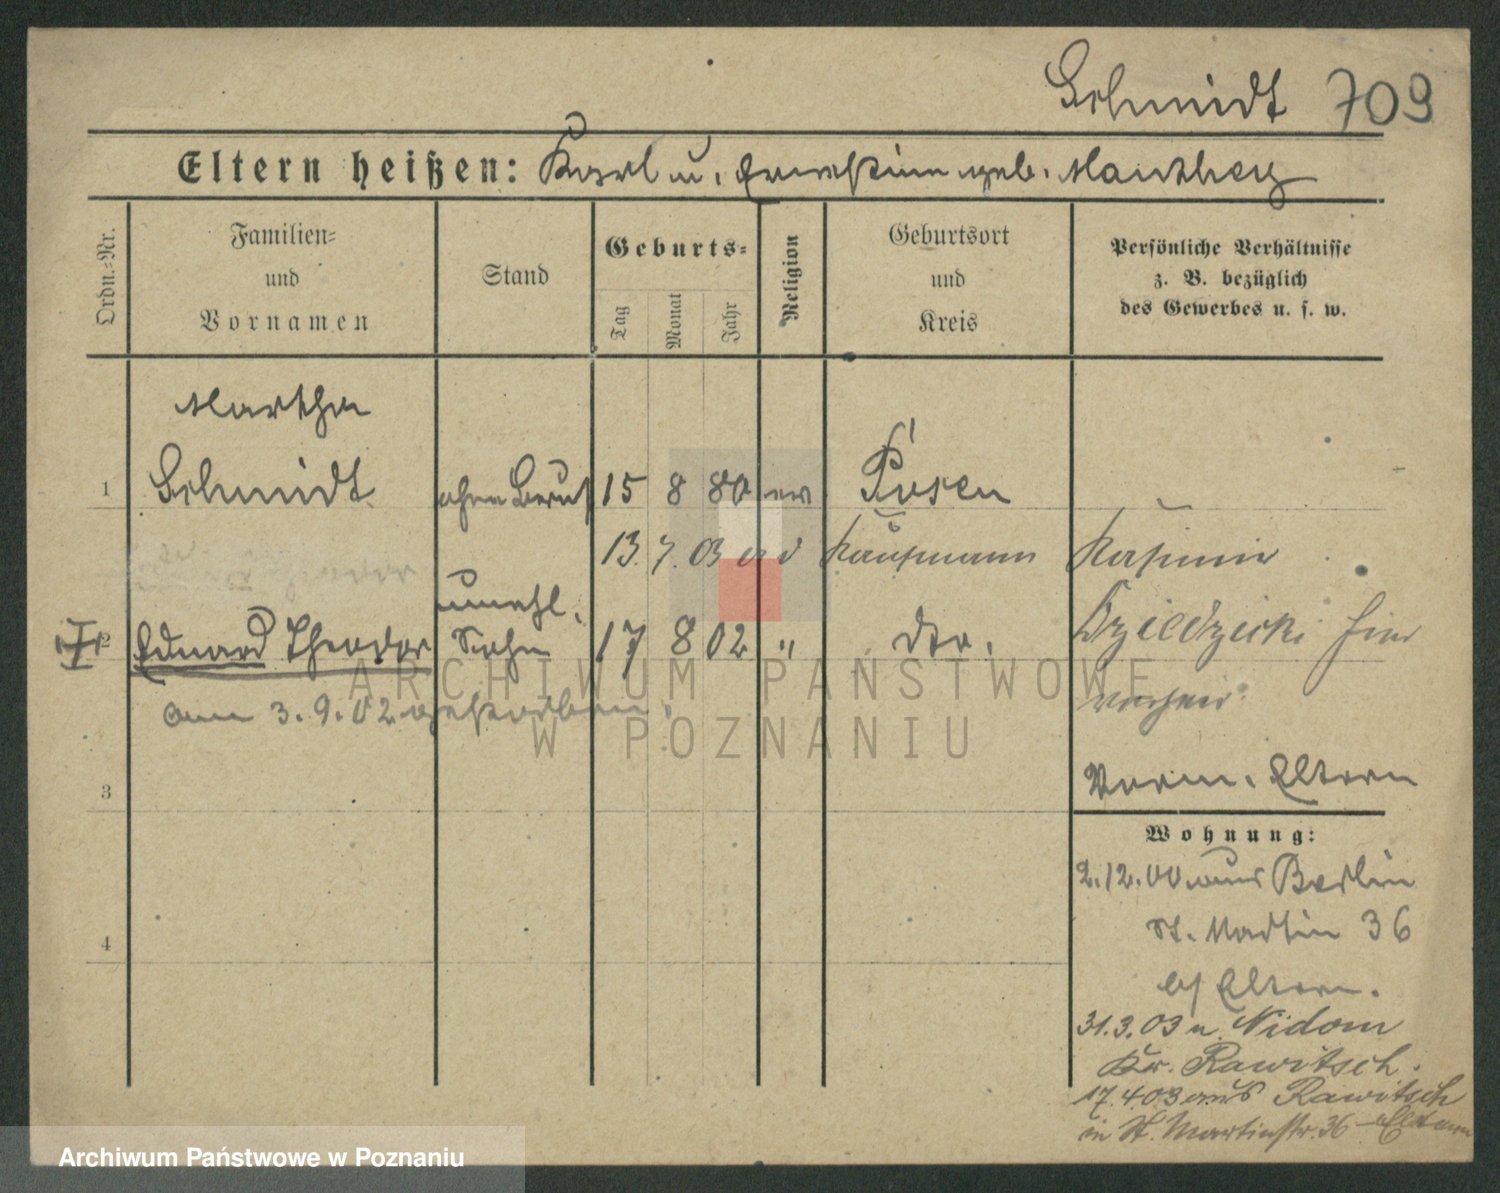 Schmidt 709
Eltern heißen: Karl u. Ernestine geb. Manthey
Ordn.=Nr.
Familien= und Vornamen
Stand
Geburts=
Tag
Monat
Jahr
Religion
Geburtsort und Kreis
Persönliche Verhältnisse
z. B. bezüglich
des Gewerbes u. s. w.
Martha
1 Schmidt ohne Beruf 15 8 80 ev Posen
13. 7. 03 Kaufmann Kasimir
unehl.
2 Eduard Theodor Sohn 17 8 02 " dto. Dziedzicki hier
am 3.9.02 gestorben.
3
Vorm. Eltern
Wohnung:
2.12.00 aus Berlin
St. Martin 36
4
b/ Eltern.
31.3.03 n. Nidom
Kr. Rawitsch.
17.4.03 aus Rawitsch
in St. Martinstr. 36 Eltern
ARCHIWUM PAŃSTWOWE
W POZNANIU
Archiwum Państwowe w Poznaniu